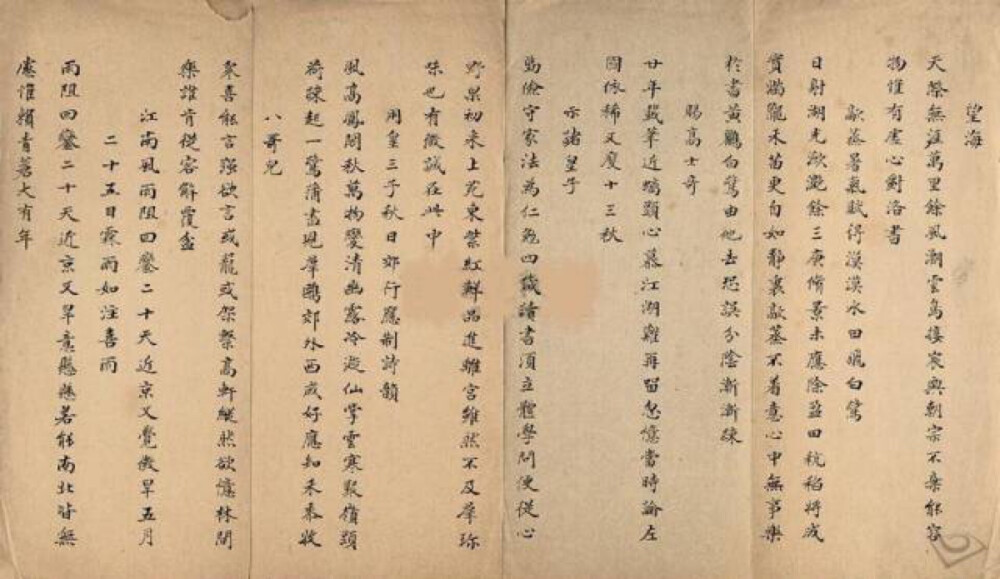 望海
天際無涯萬里餘風潮雲島接裳輿朝宗不棄能容
物誰有虛心對洛書
歊蒸暑氣賦得漠漠水田飛白鷺
日射湖光潋灔餘三庚脩景未應除並田秔稻將成
實滿隴禾苗更自如靜裏歊蒸不着意心中無事樂
於書黃鸝白鷺由他去恐誤分陰漸漸疎
賜高士奇
廿年載筆近螭頭心慕江湖難再留忽憶當時論左
國依稀又度十三秋
示諸皇子
篤儉守家法為仁勉四箴讀書須立體學問便從心
野果初来上苑東縈紅鮮品進離宮雖然不及羣珍
味也有微誠在此中
用皇三子秋日郊行應制詩韻
風高鳳閣秋萬物變清幽露冷凝仙掌雲寒聚嶺頭
荷疎起一鷺蒲盡現羣鷗郊外西成好應知禾黍收
八哥兒
衆喜能言强欲言或籠或架繫高軒縱然欲憶林間
樂誰肯從容解覆盆
江南風雨阻回鑾二十天近京又覺微旱五月
二十五日霖雨如注喜而
雨阻回鑾二十天近京又旱意懸懸若能南北皆無
慮誰賴青蒼大有年